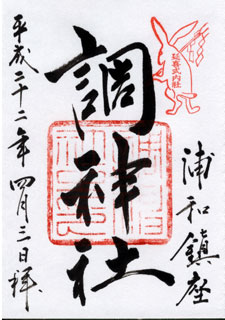 延喜式内社
浦和鎮座
調神社
平成二十二年四月三日拝